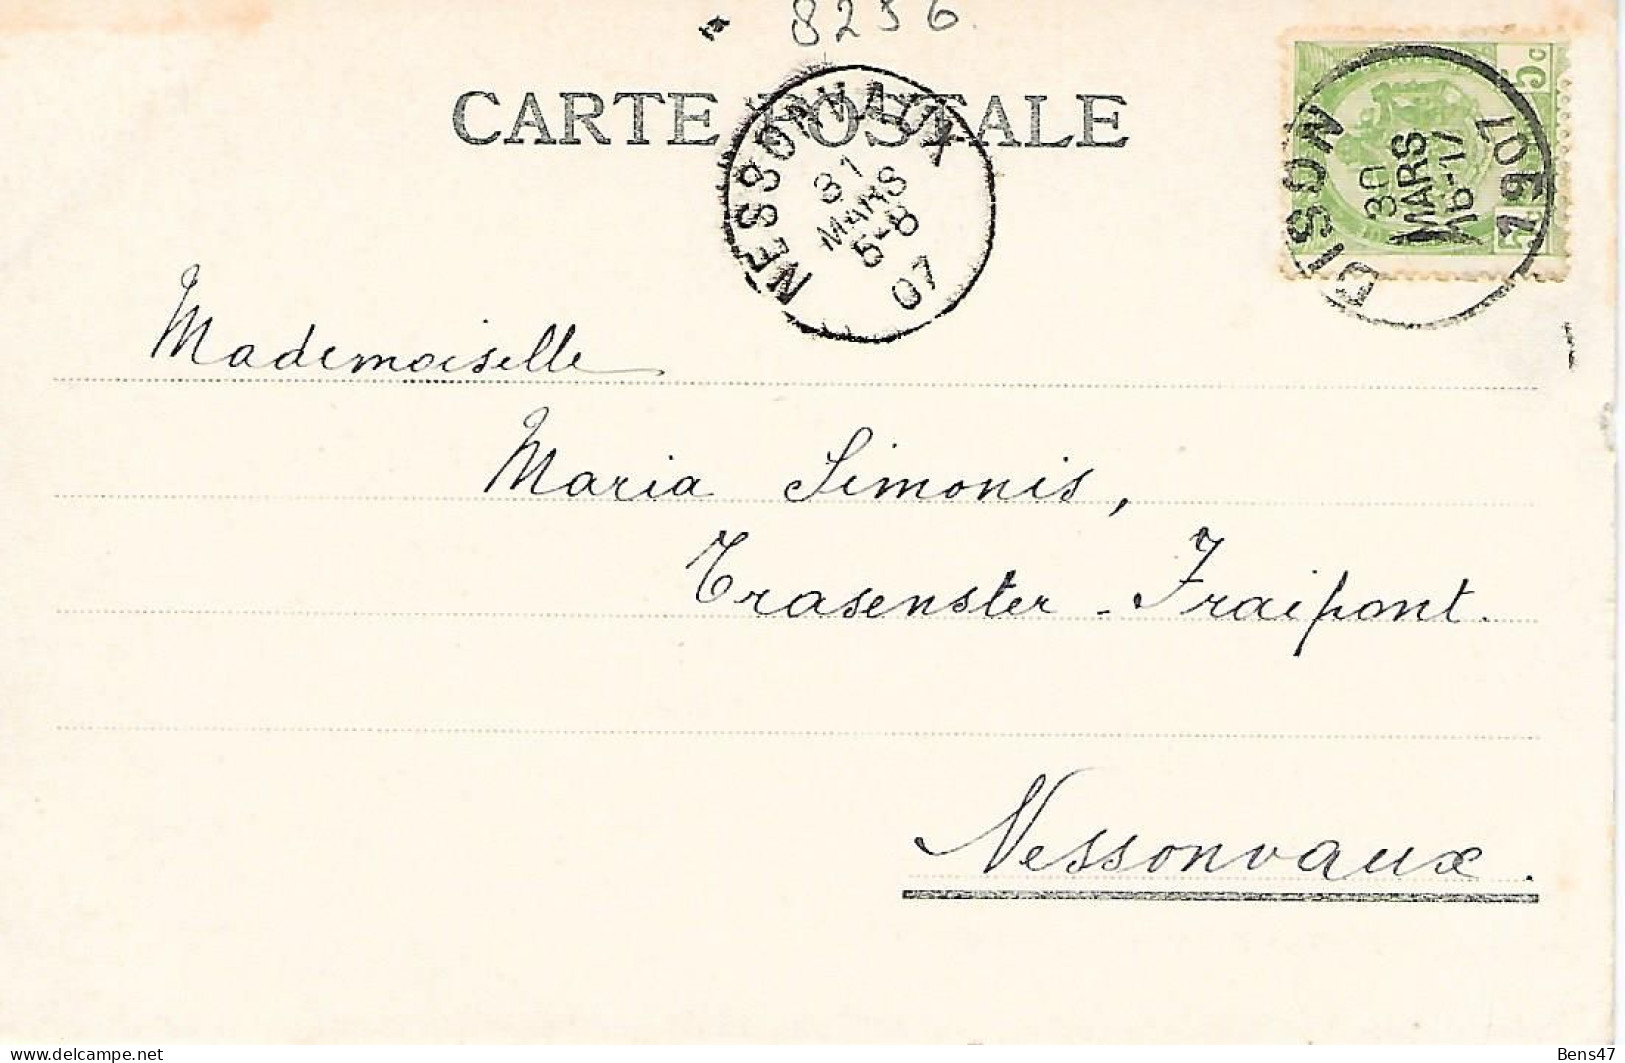 8256
CARTE POSTALE
NESSONVAUX
31
MARS
5-8
07
DISON
30
MARS
16-17
1907
5c
Mademoiselle
Maria Simonis,
Trasenster - Fraipont.
Nessonvaux.
Bens47